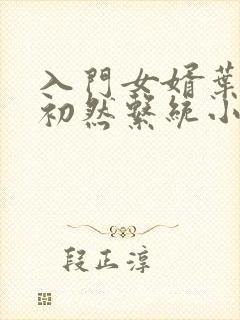 入門女婿葉
初然繫統小
段正淳